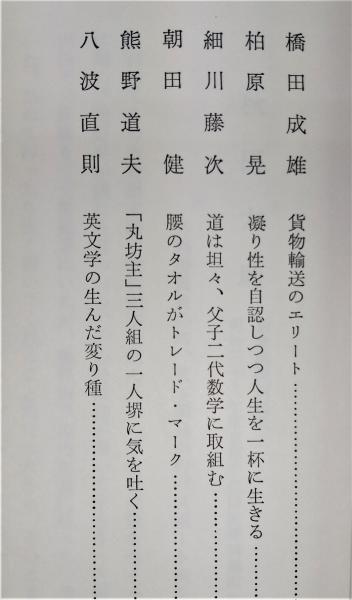 橋田成雄 貨物輸送のエリート……………………
柏原 晃 凝り性を自認しつつ人生を一杯に生きる…………
細川藤次 道は坦々、父子二代数学に取組む……………
朝田 健 腰のタオルがトレード・マーク………………
熊野道夫 「丸坊主」三人組の一人堺に気を吐く…………
八波直則 英文学の生んだ変り種……………………